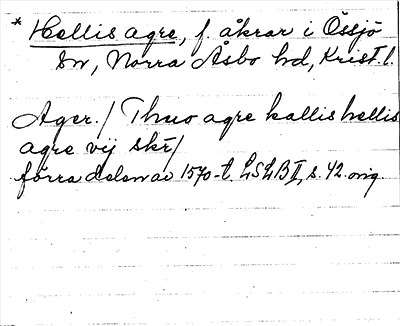 * Hellis agre, f. åkrar i Össjö
sn, Norra Åsbo hd, Krist. l.
Ager./ Thuo agre kallis hellis
agre vij skr/
förra delen av 1570-t. LSLB II, s. 42 orig.